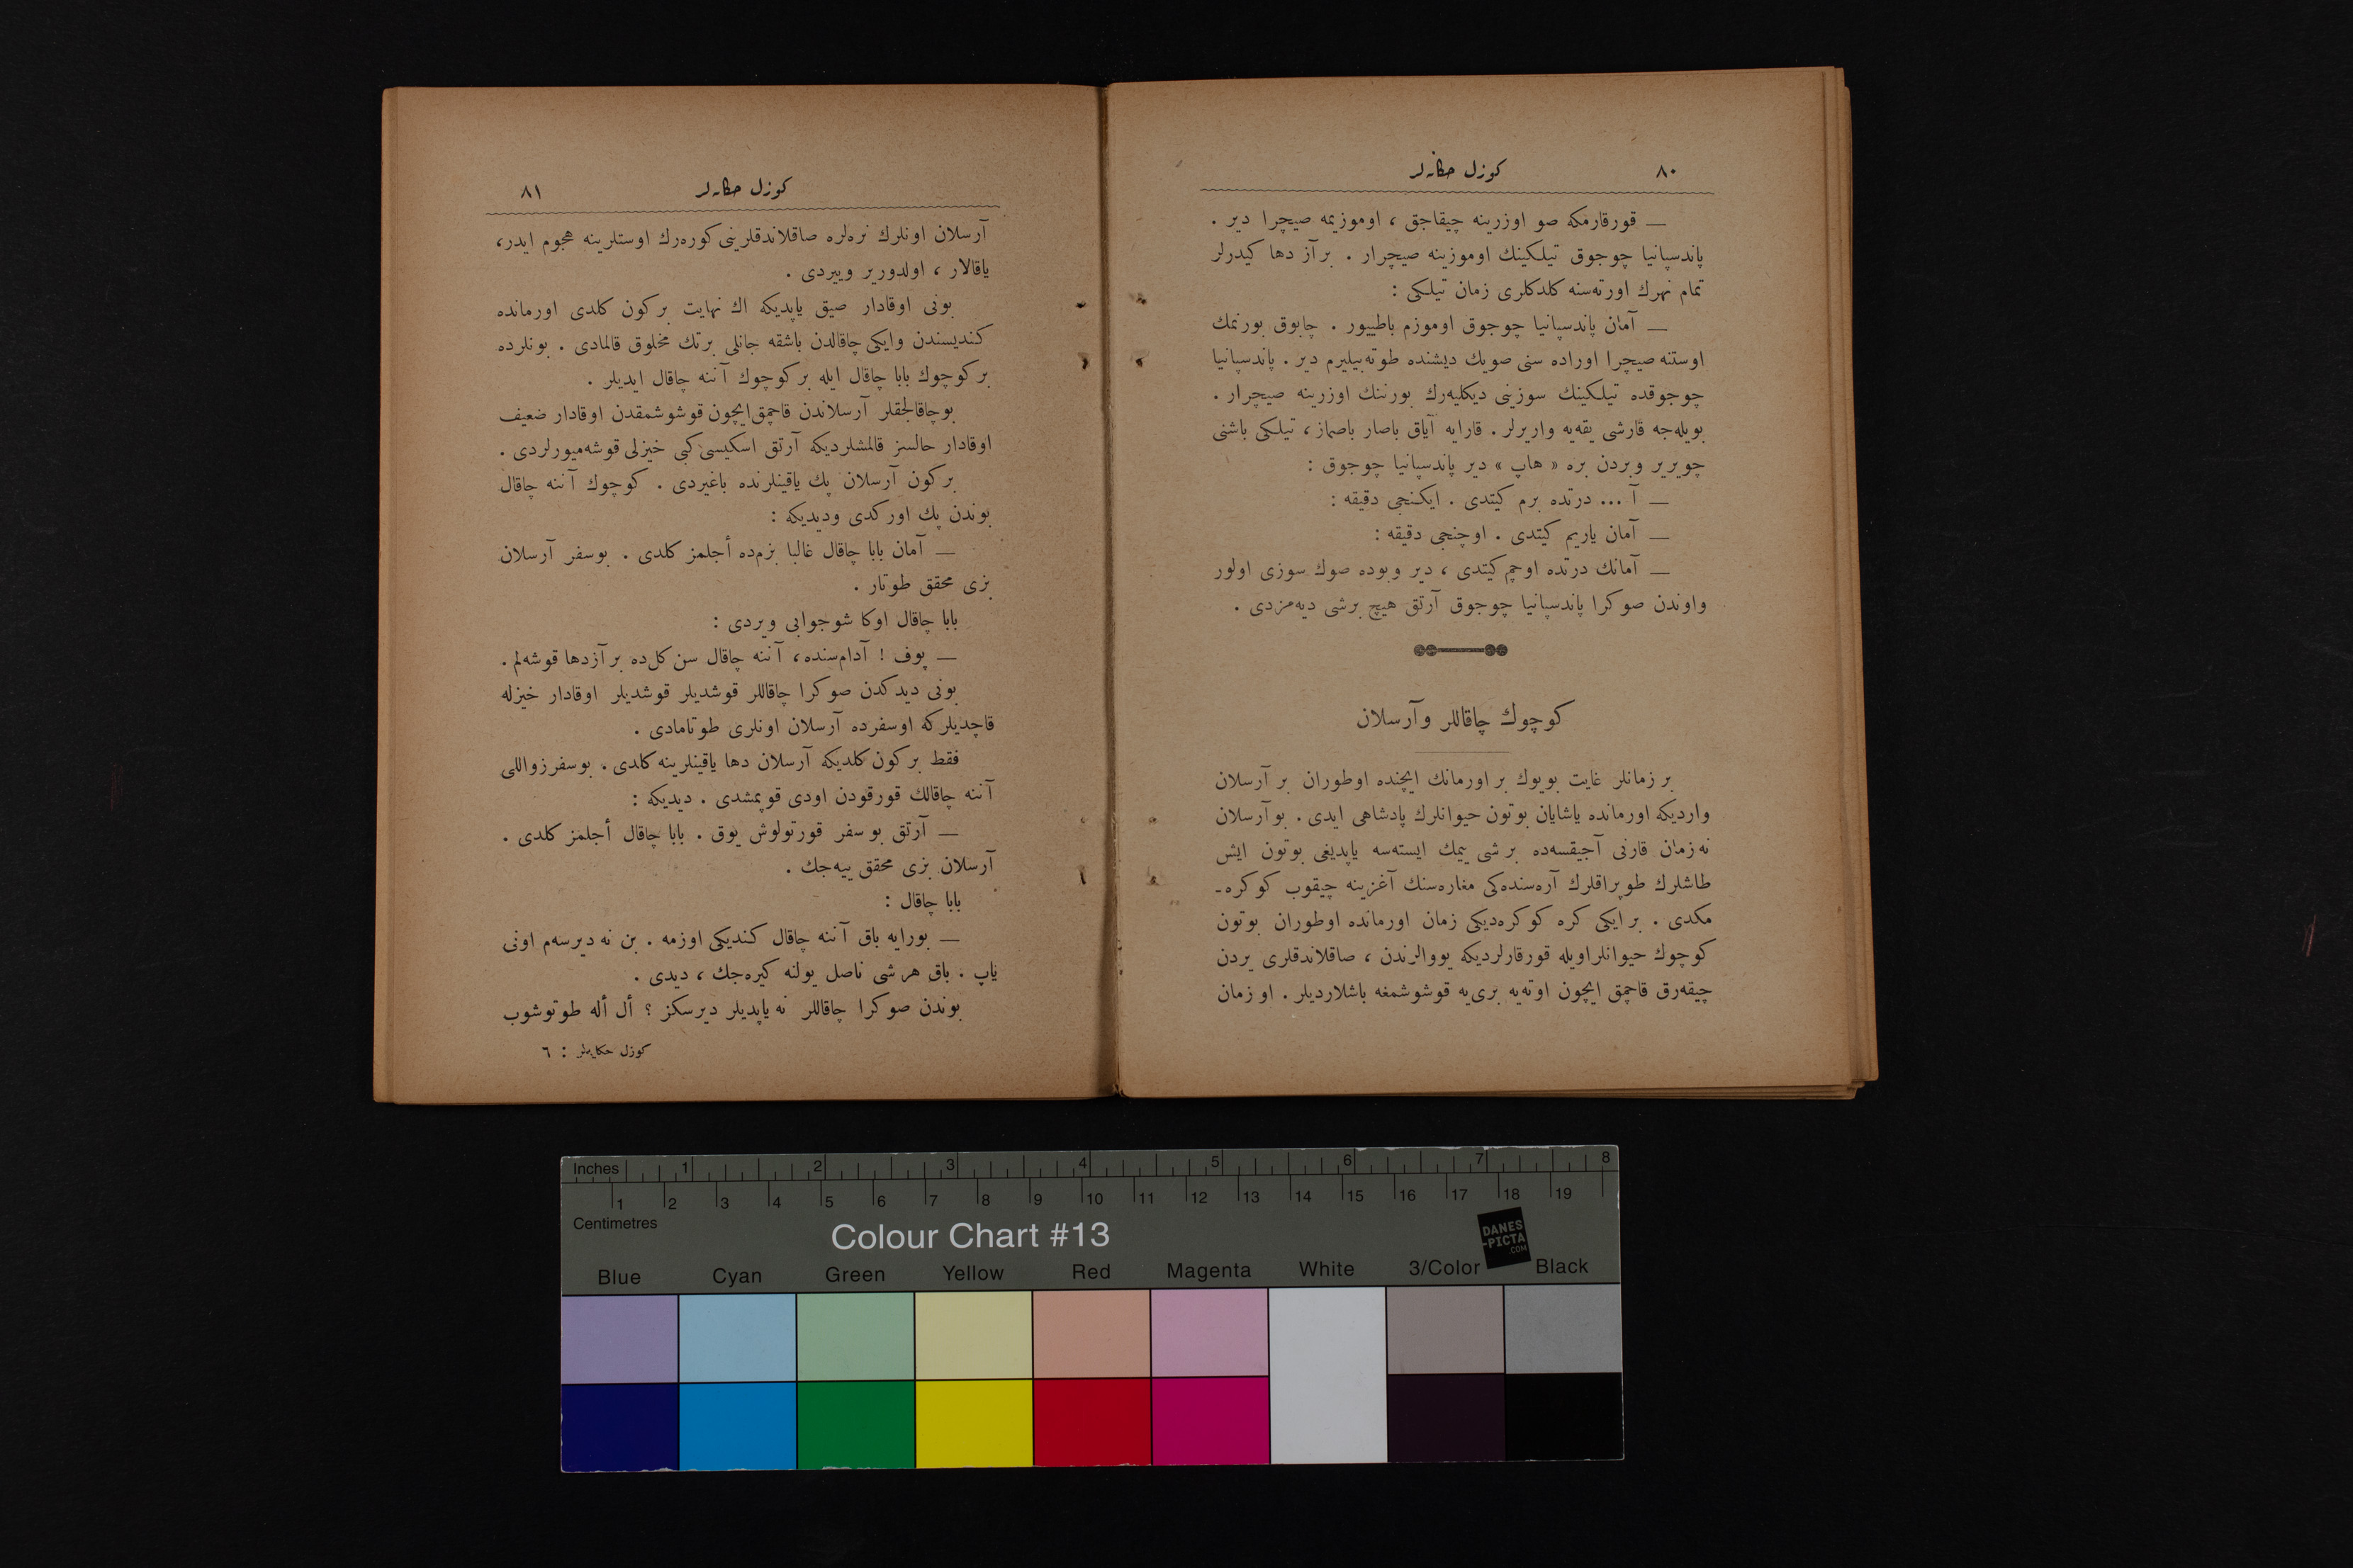 ٨٠
كوزل حكايه‌لر
— قورقارمكه صو اوزرينه چيقاجق ، اوموزيمه صيچرا دير .
پاندسپانيا چوجوق تيلكينك اوموزينه صيچرار . برآز دها كيدرلر
تمام نهرك اورته‌سنه كلدكلرى زمان تيلكى :
— آمان پاندسپانيا چوجوق اوموزم باطييور . چابوق بورنمك
اوستنه صيچرا اوراده سنى صويك ديشنده طوته‌بيليرم دير . پاندسپانيا
چوجوقده تيلكينك سوزينى ديكليه‌رك بورننك اوزرينه صيچرار .
بويله‌جه قارشى يقه‌يه واريرلر . قارايه آياق باصار باصماز ، تيلكى باشنى
چويرير وبردن بره « هاپ » دير پاندسپانيا چوجوق :
— آ ... درتده برم كيتدى . ايكنجى دقيقه :
— آمان ياريم كيتدى . اوچنجى دقيقه :
— آمانك درتده اوچم كيتدى ، دير وبوده صوك سوزى اولور
واوندن صوكرا پاندسپانيا چوجوق آرتق هيچ برشى ديه‌مزدى .
كوچوك چاقاللر وآرسلان
بر زمانلر غايت بويوك بر اورمانك ايچنده اوطوران بر آرسلان
وارديكه اورمانده ياشايان بوتون حيوانلرك پادشاهى ايدى . بو آرسلان
نه زمان قارنى آجيقسه‌ده بر شى ييمك ايسته‌سه ياپديغى بوتون ايش
طاشلرك طوپراقلرك آره‌سنده‌كى مغاره‌سنك آغزينه چيقوب كوكره‌ـ
مكدى . بر ايكى كره كوكره‌ديكى زمان اورمانده اوطوران بوتون
كوچوك حيوانلر اويله قورقارلرديكه يووالرندن ، صاقلاندقلرى يردن
چيقه‌رق قاچمق ايچون اوته‌يه برى‌يه قوشوشمغه باشلارديلر . او زمان
كوزل حكايه‌لر
٨١
آرسلان اونلرك نره‌لره صاقلاندقلرينى كوره‌رك اوستلرينه هجوم ايدر،
ياقالار ، اولدورير وييردى .
بونى اوقادار صيق ياپديكه اك نهايت بر كون كلدى اورمانده
كنديسندن وايكى چاقالدن باشقه جانلى برتك مخلوق قالمادى . بونلرده
بر كوچوك بابا چاقال ايله بر كوچوك آننه چاقال ايديلر .
بوچاقالجقلر آرسلاندن قاچمق ايچون قوشوشمقدن اوقادار ضعيف
اوقادار حالسز قالمشلرديكه آرتق اسكيسى كبى خيزلى قوشه‌ميورلردى .
بر كون آرسلان پك ياقينلرنده باغيردى . كوچوك آننه چاقال
بوندن پك اوركدى وديديكه :
— آمان بابا چاقال غالبا بزم‌ده أجلمز كلدى . بوسفر آرسلان
بزى محقق طوتار .
بابا چاقال اوكا شو جوابى ويردى :
— پوف ! آدام سنده ، آننه چاقال سن كل‌ده بر آزدها قوشه‌لم .
بونى ديدكدن صوكرا چاقاللر قوشديلر قوشديلر اوقادار خيزله
قاچديلركه اوسفرده آرسلان اونلرى طوتامادى .
فقط بر كون كلديكه آرسلان دها ياقينلرينه كلدى . بوسفر زواللى
آننه چاقالك قورقودن اودى قوپمشدى . ديديكه :
— آرتق بو سفر قورتولوش يوق . بابا چاقال أجلمز كلدى .
آرسلان بزى محقق ييه‌جك .
بابا چاقال :
— بورايه باق آننه چاقال كنديكى اوزمه . بن نه ديرسه‌م اونى
ياپ . باق هر شى ناصل يولنه كيره‌جك ، ديدى .
بوندن صوكرا چاقاللر نه ياپديلر ديرسكز ؟ أل أله طوتوشوب
كوزل حكايه‌لر : ٦
Inches 1 2 3 4 5 6 7 8
1 2 3 4 5 6 7 8 9 10 11 12 13 14 15 16 17 18 19
Centimetres
Colour Chart #13
DANES
-PICTA
.COM
Blue Cyan Green Yellow Red Magenta White 3/Color Black